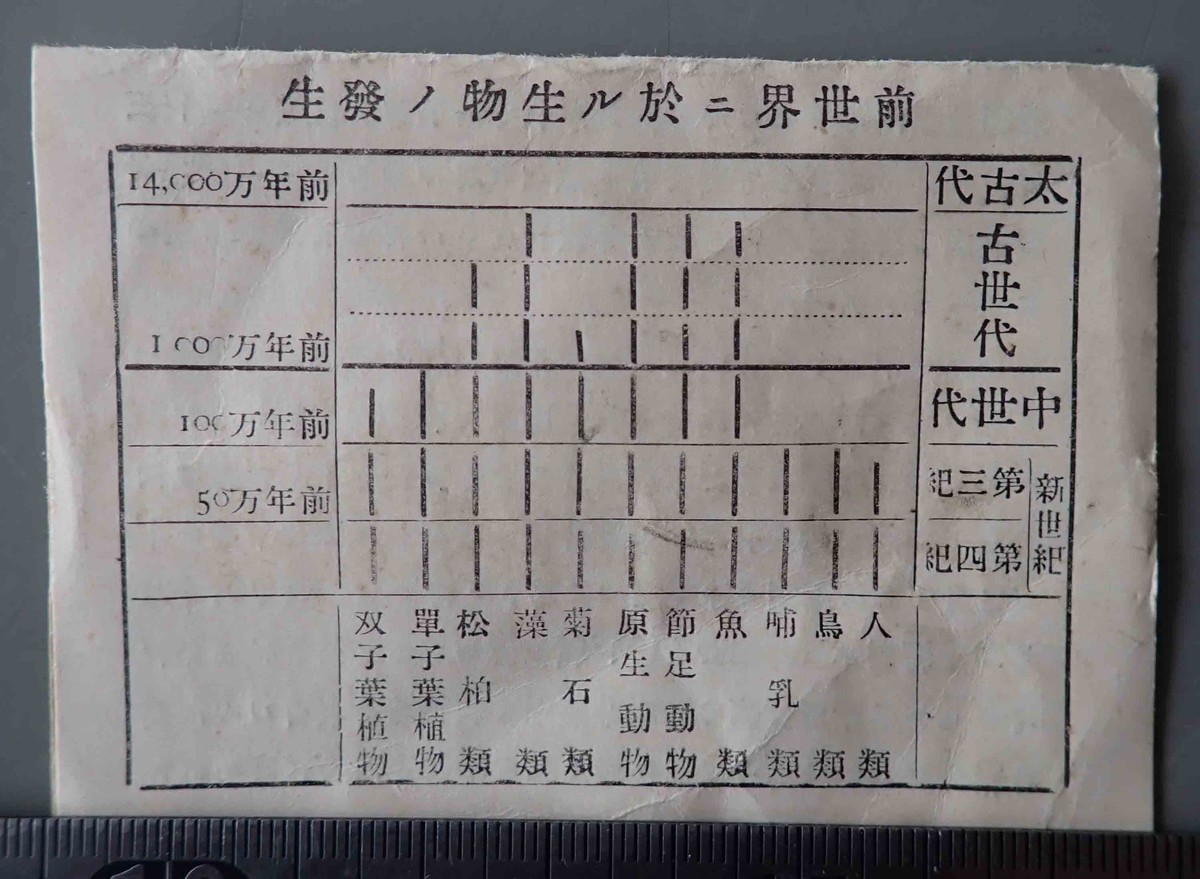 前世界ニ於ル生物ノ發生
太古代
14,000万年前
古世代
1000万年前
中世代
100万年前
新世紀
第三紀
50万年前
第四紀
人類
鳥類
哺乳類
魚類
節足動物
原生動物
菊石類
藻類
松柏類
單子葉植物
双子葉植物